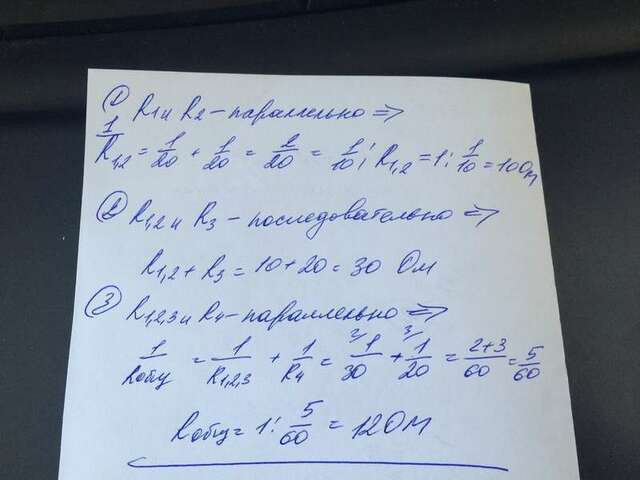 ① R1 и R2 - параллельно ⇒
1/R1,2 = 1/20 + 1/20 = 2/20 = 1/10; R1,2 = 1 : 1/10 = 10 Ом
② R1,2 и R3 - последовательно ⇒
R1,2 + R3 = 10 + 20 = 30 Ом
③ R1,2,3 и R4 - параллельно ⇒
1/Rобщ = 1/R1,2,3 + 1/R4 = 1/30 + 1/20 = 2+3/60 = 5/60
Rобщ = 1 : 5/60 = 12 Ом